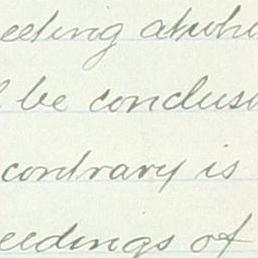 eeting at whi
be conclusi
contrary is
eedings of